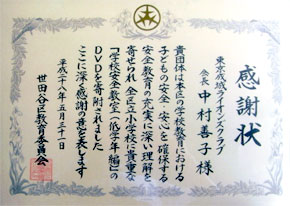 感謝状
東京成城ライオンズクラブ
会長 中村善子様
貴団体は本区の学校教育における
子どもの安全・安心を確保する
安全教育の充実に深い理解を
寄せられ全区立小学校に貴重な
『学校安全教室（低学年編）』の
DVDを寄附されました
ここに深く感謝の意を表します
平成二十八年五月三十一日
世田谷区教育委員会